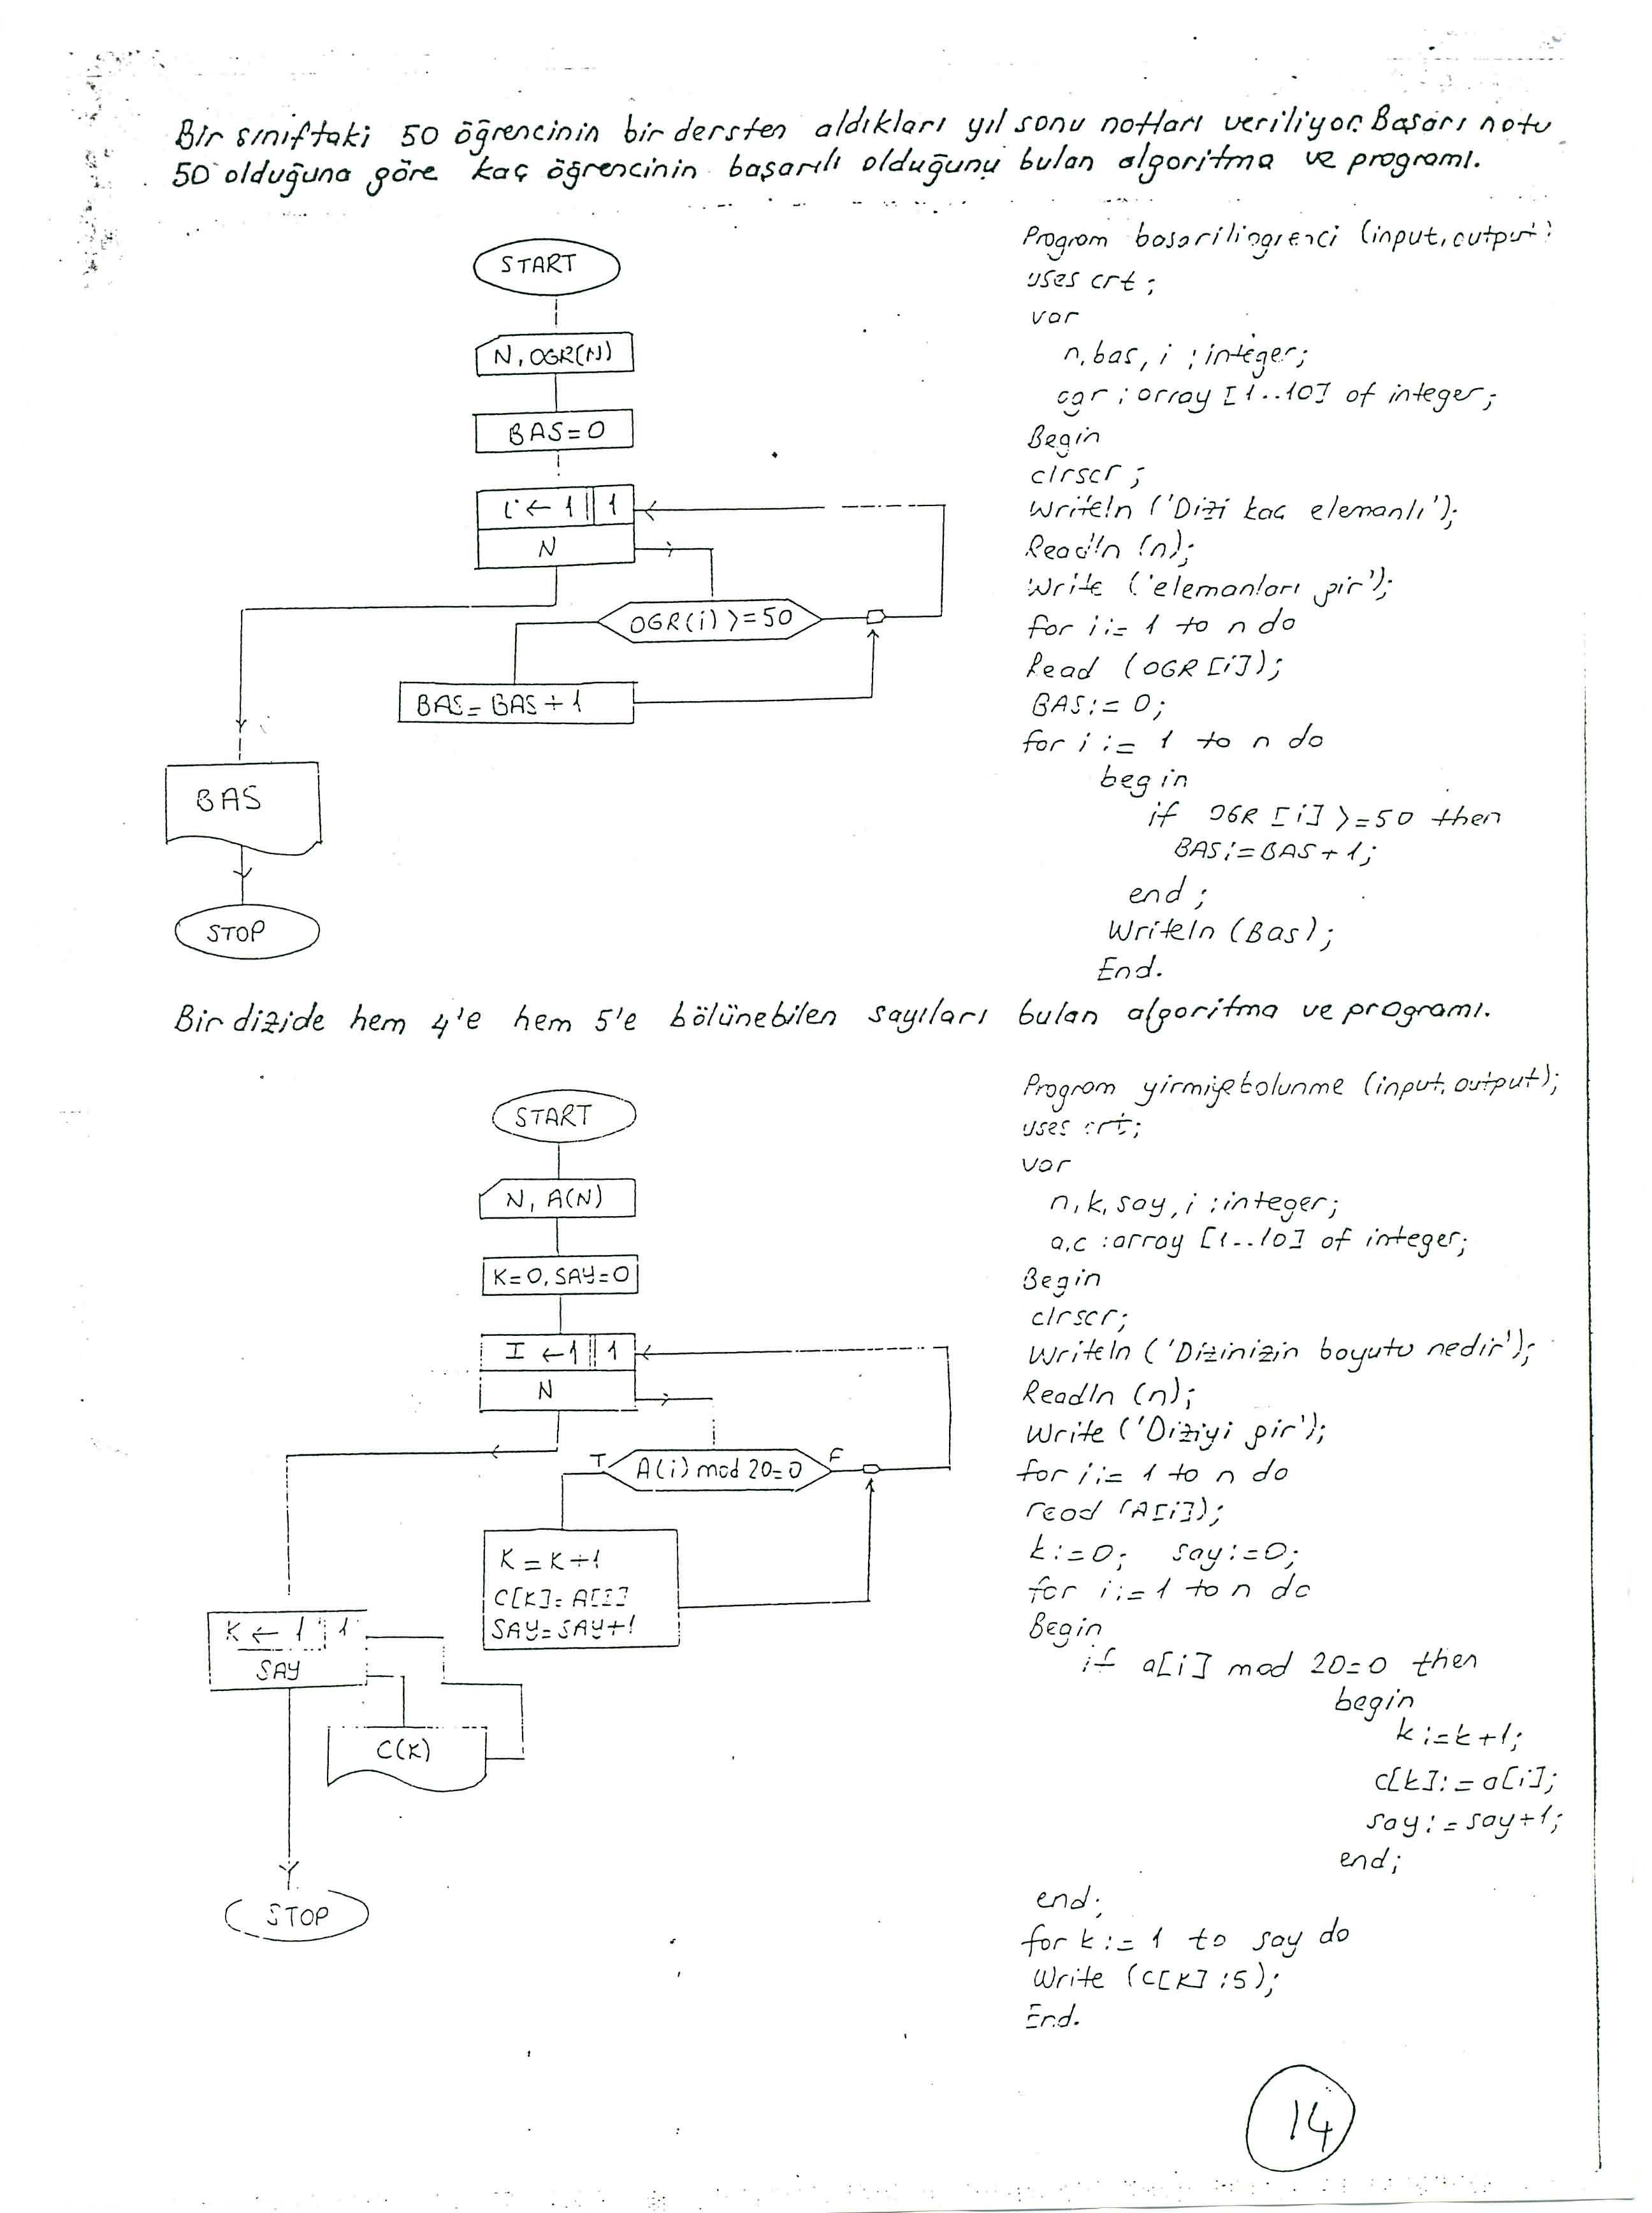 Bir sınıftaki 50 öğrencinin bir dersten aldıkları yıl sonu notları veriliyor. Başarı notu
50 olduğuna göre kaç öğrencinin başarılı olduğunu bulan algoritma ve programı.
START
N, OGR(N)
BAS=0
i ← 1 || 1
N
OGR(i) >=50
BAS=BAS+1
BAS
STOP
Program basarili (input, output)
uses crt;
var
n, bas, i : integer;
ogr : array [1..10] of integer;
Begin
clrscr;
Writeln ('Dizi kac elemanlı');
Readln (n);
Write ('elemanları gir');
for i:= 1 to n do
Read (OGR [i]);
BAS:= 0;
for i := 1 to n do
begin
if OGR [i] >=50 then
BAS:=BAS+1;
end;
Writeln (Bas);
End.
Bir dizide hem 4'e hem 5'e bölünebilen sayıları bulan algoritma ve programı.
START
N, A(N)
K=0, SAY=0
I ← 1 || 1
N
T A(i) mod 20=0 F
K=K+1
C[K]=A[I]
SAY=SAY+1
K ← 1 1
SAY
C(K)
STOP
Program yirmiyebolunme (input, output);
uses crt;
var
n, k, say, i : integer;
a,c : array [1..10] of integer;
Begin
clrscr;
Writeln ('Dizinizin boyutu nedir');
Readln (n);
Write ('Diziyi gir');
for i:= 1 to n do
read (A[i]);
k:=0; say:=0;
for i:=1 to n do
Begin
if a[i] mod 20=0 then
begin
k:=k+1;
c[k]:=a[i];
say:=say+1;
end;
end;
for k:= 1 to say do
Write (C[K]:5);
End.
14